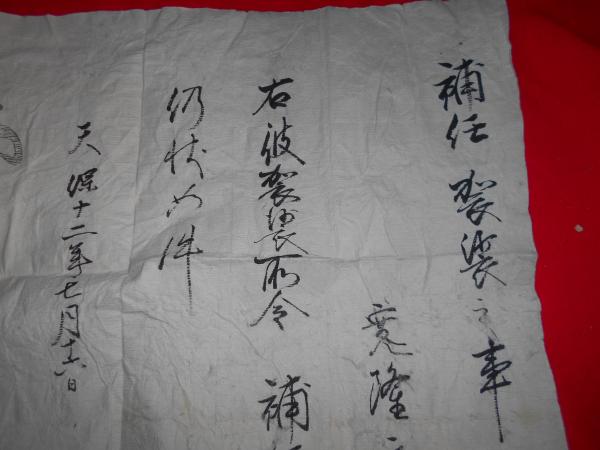 補任 袈裟之事
寛隆
右彼袈裟所令 補任
仍状如件
天保十二年七月十六日